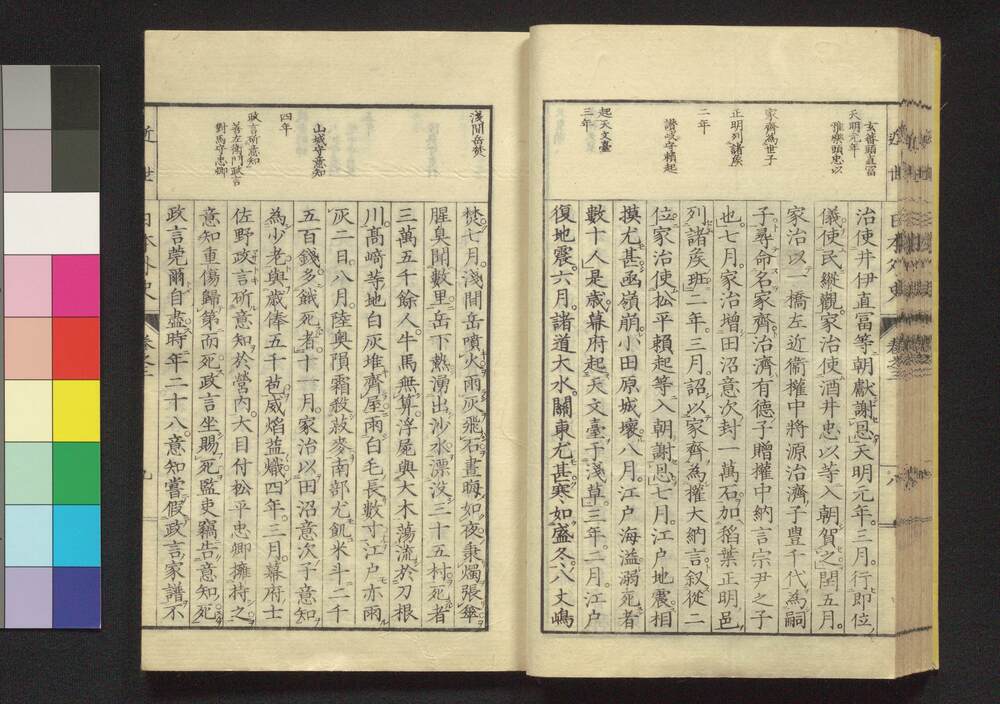 玄蕃頭直冨
天明元年
雅樂頭忠以
家齊爲世子
正明列諸矦
二年
讃岐守頼起
起天文臺
三年
治使井伊直冨等朝獻謝恩天明元年三月行即位
儀使民縱觀家治使酒井忠以等入朝賀之閏五月
家治以一橋左近衞權中將源治濟子豊千代爲嗣
子尋命名家齊治濟有德子贈權中納言宗尹之子
也七月家治增田沼意次封一萬石加稻葉正明邑
列諸矦班二年三月詔以家齊爲權大納言叙從二
位家治使松平頼起等入朝謝恩七月江戸地震相
摸尤甚凾嶺崩小田原城壞八月江戸海溢溺死者
數十人是歳幕府起天文臺于淺草三年二月江戸
復地震六月諸道大水關東尤甚寒如盛冬八丈嶋
淺間岳焚
山城守意知
四年
政言斫意知
善左衞門政言
對馬守忠郷
近世日本外史
焚七月淺間岳噴火雨灰飛石晝晦如夜秉燭張傘
腥臭聞數里岳下熱湧出沙水漂沒三十五村死者
三萬五千餘人牛馬無算浮屍與大木蕩流於刀根
川髙﨑等地白灰堆齊屋雨白毛長數寸江戸亦雨
灰二日八月陸奥隕霜殺菽麥南部尤飢米斗二千
五百錢多餓死者十一月家治以田沼意次子意知
爲少老與歳俸五千苞威焰益熾四年三月幕府士
佐野政言斫意知於營内大目付松平忠郷擁持之
意知重傷歸第而死政言坐賜死監吏竊告意知死
政言莞爾自盡時年二十八意知嘗假政言家譜不